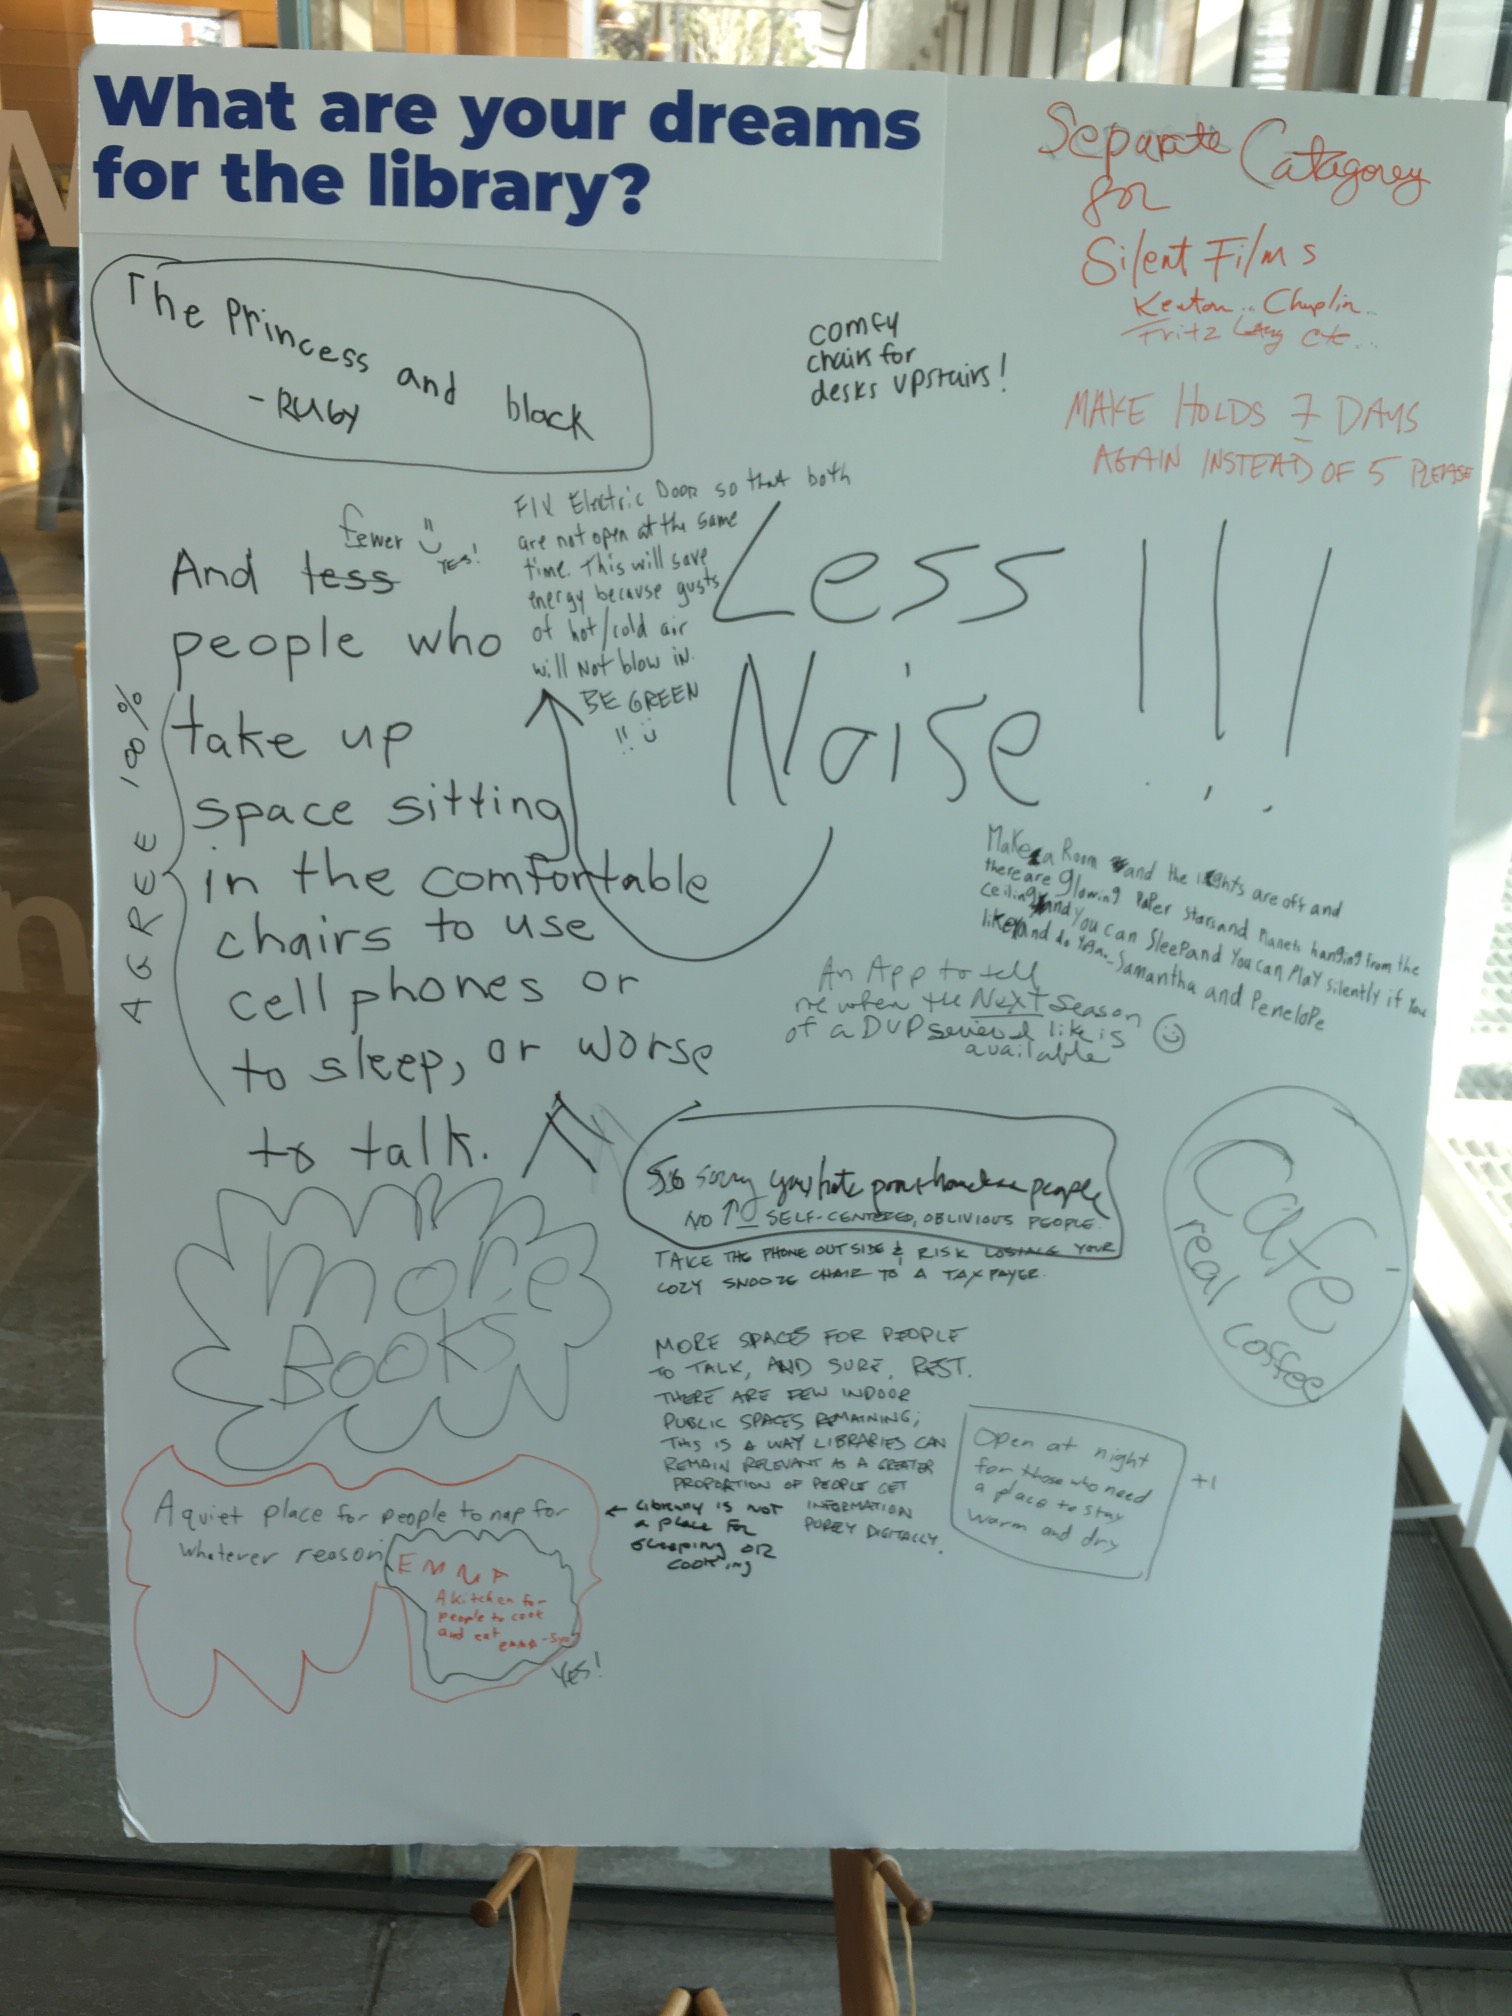 What are your dreams
for the library?
Separate Catagorey
for
Silent Films
Keaton.. Chaplin..
Fritz Lang etc...
The Princess and black
-RUBY
comfy
chairs for
desks upstairs!
MAKE HOLDS 7 DAYS
AGAIN INSTEAD OF 5 PLEASE
Less
Noise !!!
fewer
YES!
And less
people who
take up
space sitting
in the comfortable
chairs to use
cell phones or
to sleep, or worse
to talk.
AGREE 100%
FIX Electric Door so that both
are not open at the same
time. This will save
energy because gusts
of hot/cold air
will Not blow in.
BE GREEN
!!
Make a Room and the lights are off and
there are glowing paper stars and Planets hanging from the
ceiling and you can Sleep and You can Play silently if you
like and do Yoga - Samantha and Penelope
An App to tell
me when the NexT season
of a DVD series I like is
available
So sorry you hate poor + homeless people
NO ↑ SELF-CENTERED, OBLIVIOUS PEOPLE.
TAKE THE PHONE OUTSIDE & RISK LOSING YOUR
COZY SNOOZE CHAIR TO A TAXPAYER.
Café
real coffee
more
BOOKS
MORE SPACES FOR PEOPLE
TO TALK, AND SURE, REST.
THERE ARE FEW INDOOR
PUBLIC SPACES REMAINING;
THIS IS A WAY LIBRARIES CAN
REMAIN RELEVANT AS A GREATER
PROPORTION OF PEOPLE GET
INFORMATION
PURELY DIGITALLY.
Open at night
for those who need
a place to stay
warm and dry
+1
A quiet place for people to nap for
whatever reason
← LIBRARY IS NOT
a place for
Sleeping OR
cooking
EMMA
A kitchen for
people to cook
and eat
YES!